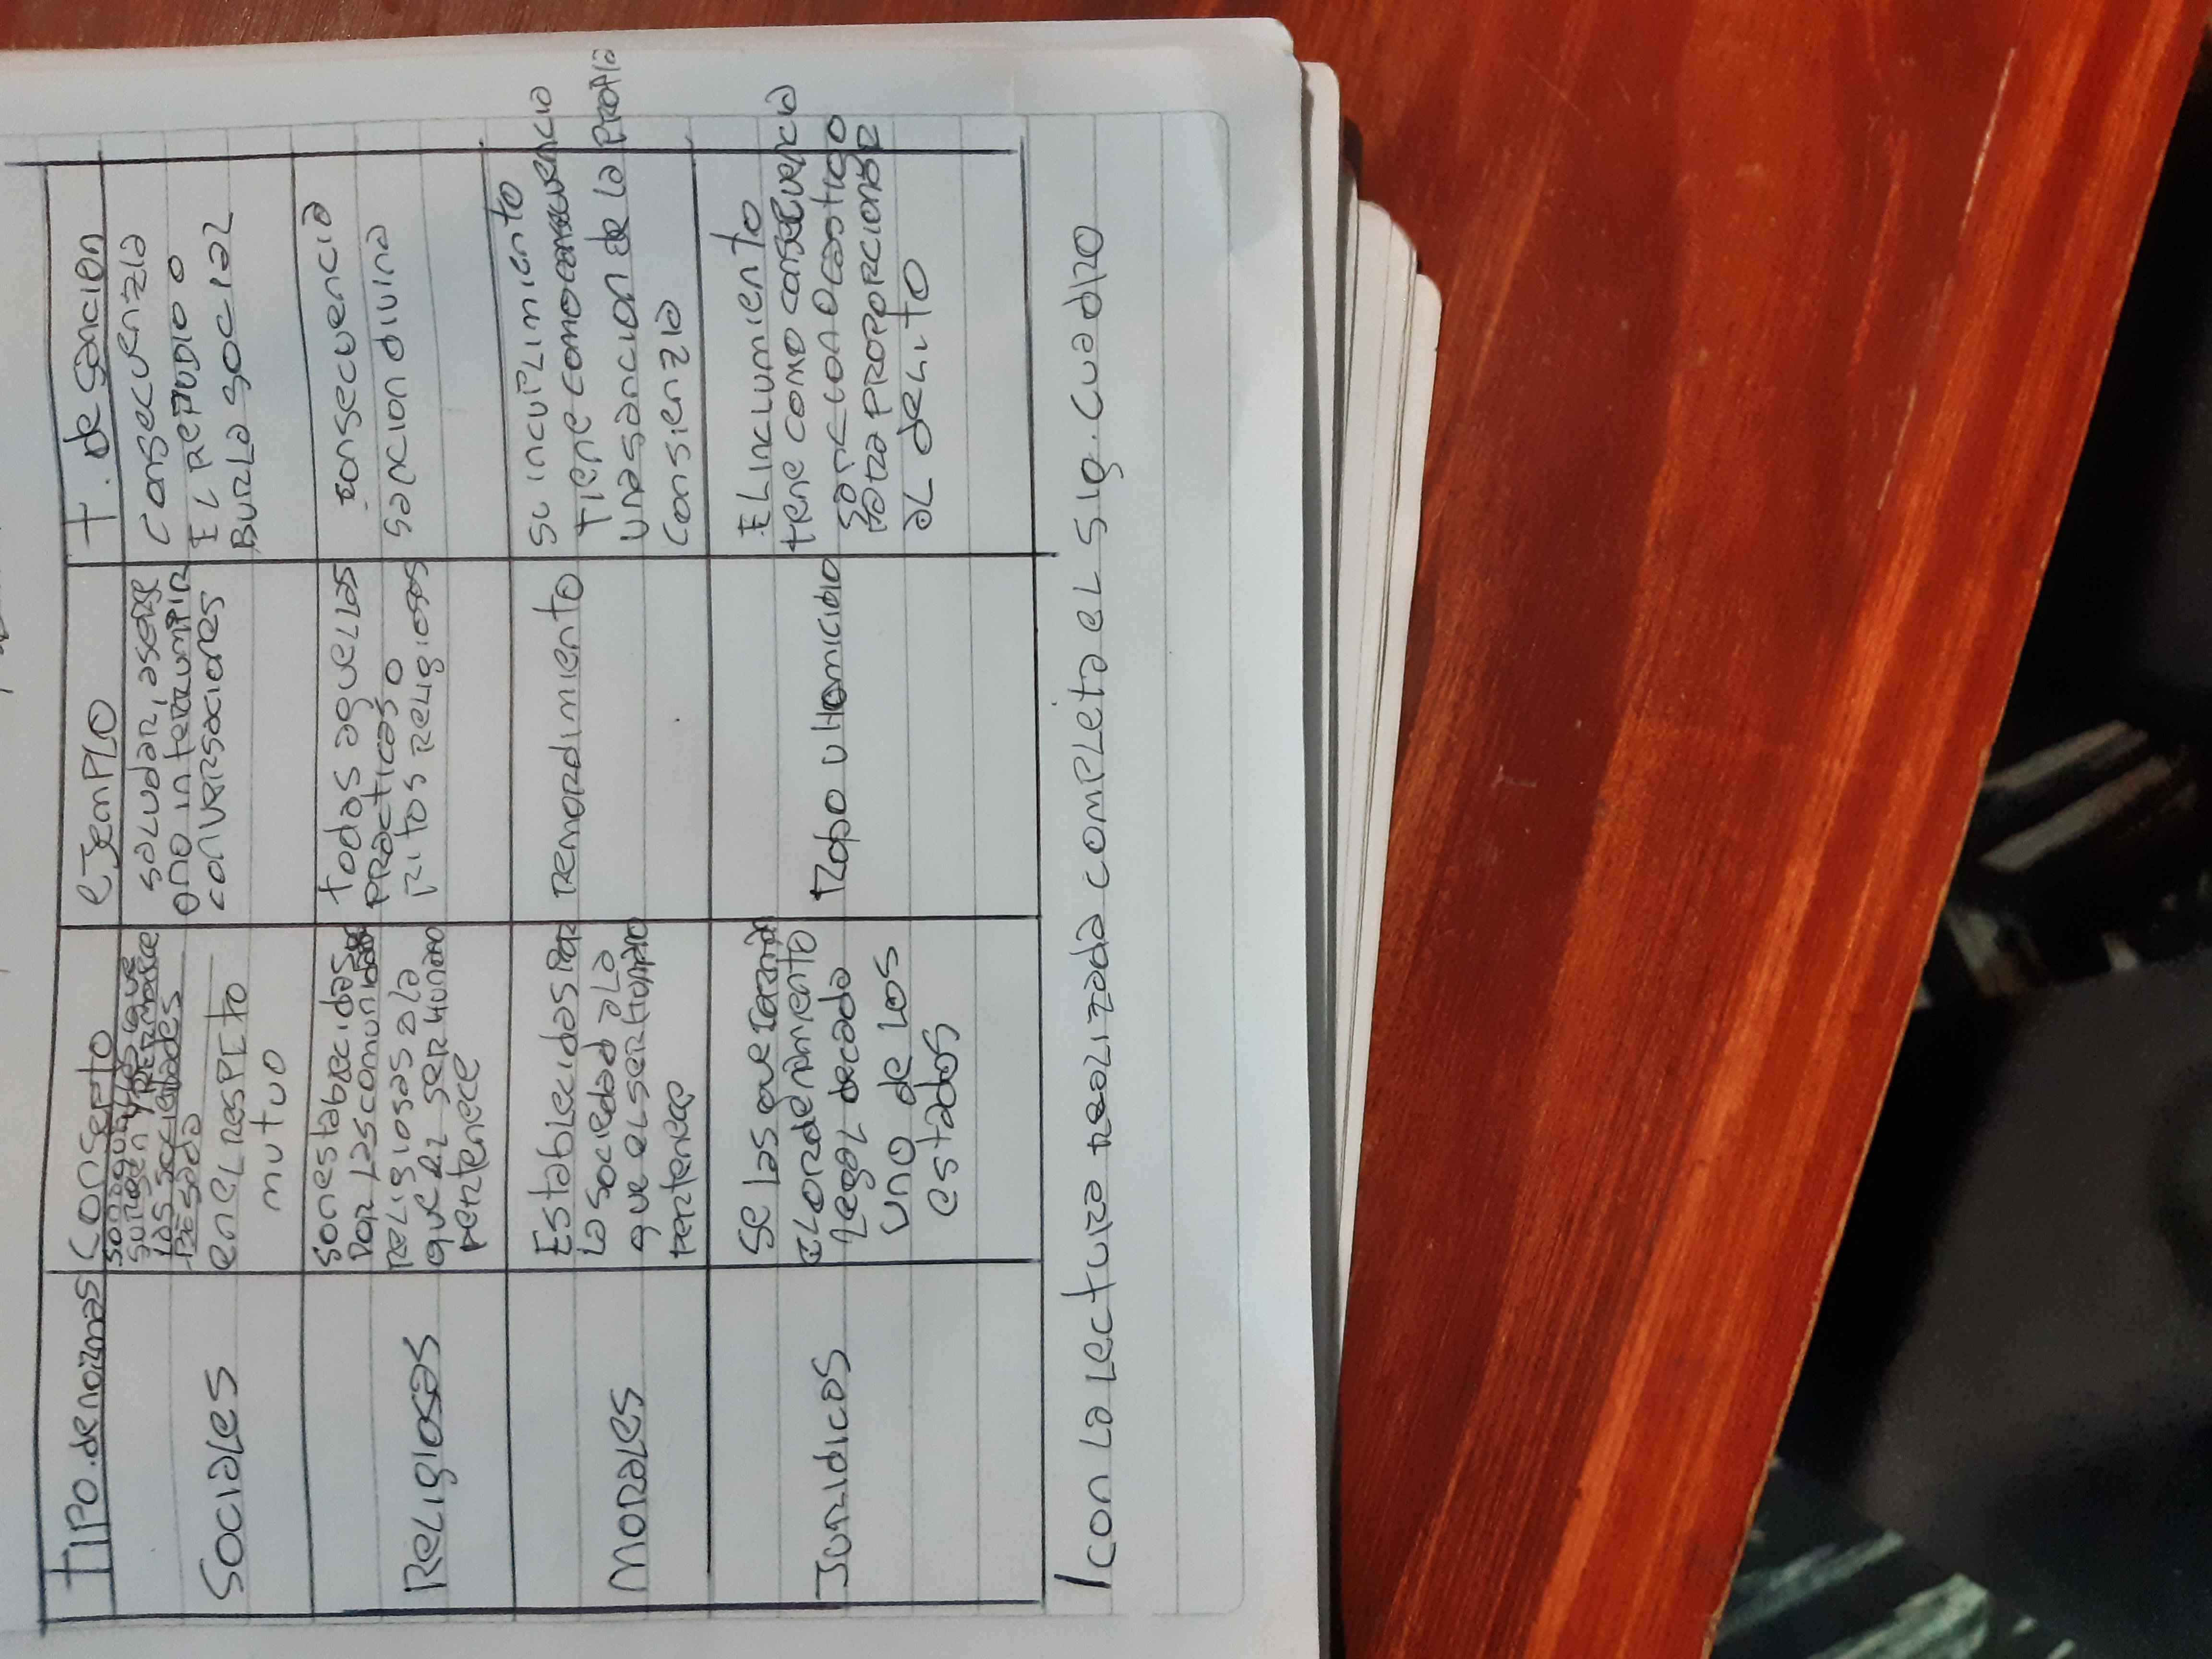 Tipo.denormas Consepto ejemplo T. de sancion
Sociales
son aquellas que
surgen y permanece
las sociedades
Pesada
enel respeto
mutuo
saludar, aserse
o no interrumpir
conversaciones
consecuenzia
El repudio o
Burla social
Religiosas
sonestablecidas
Por lascomunidades
religiosas ala
que el ser Humano
pertenece
todas aquellas
practicas o
ritos religiosos
consecuencia
sancion divina
morales
Establecidas Por
la sociedad ala
que el ser Humano
pertenece
remordimiento
su incuplimiento
Tiene como consecuencia
una sancion de la propia
consienzia
Juridicos
se las que
El ordenamiento
legal decada
uno de los
estados
Robo u Homicidio
El inclumiento
trene como consecuencia
sancion o castigo
proporcionar
al delito
1 con la lectura realizada completa el sig. cuadro